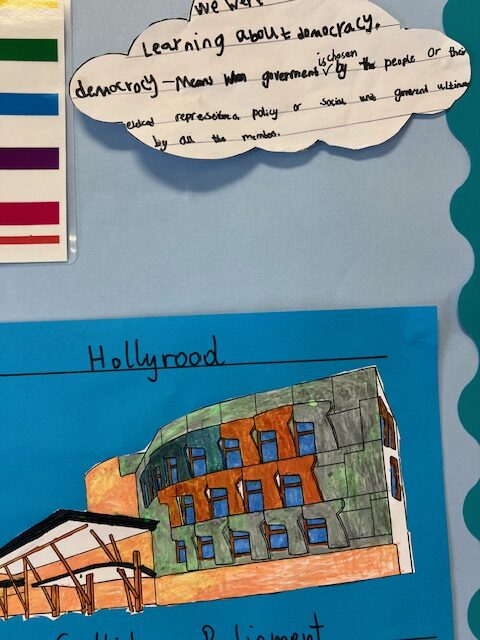 we wer
Learning about democracy.
democrocy - Means when goverment is chosen by the people or their
eldcal represitina policy or social unit governed ultima
by all the membos.
Hollyrood
Scottish Parliament